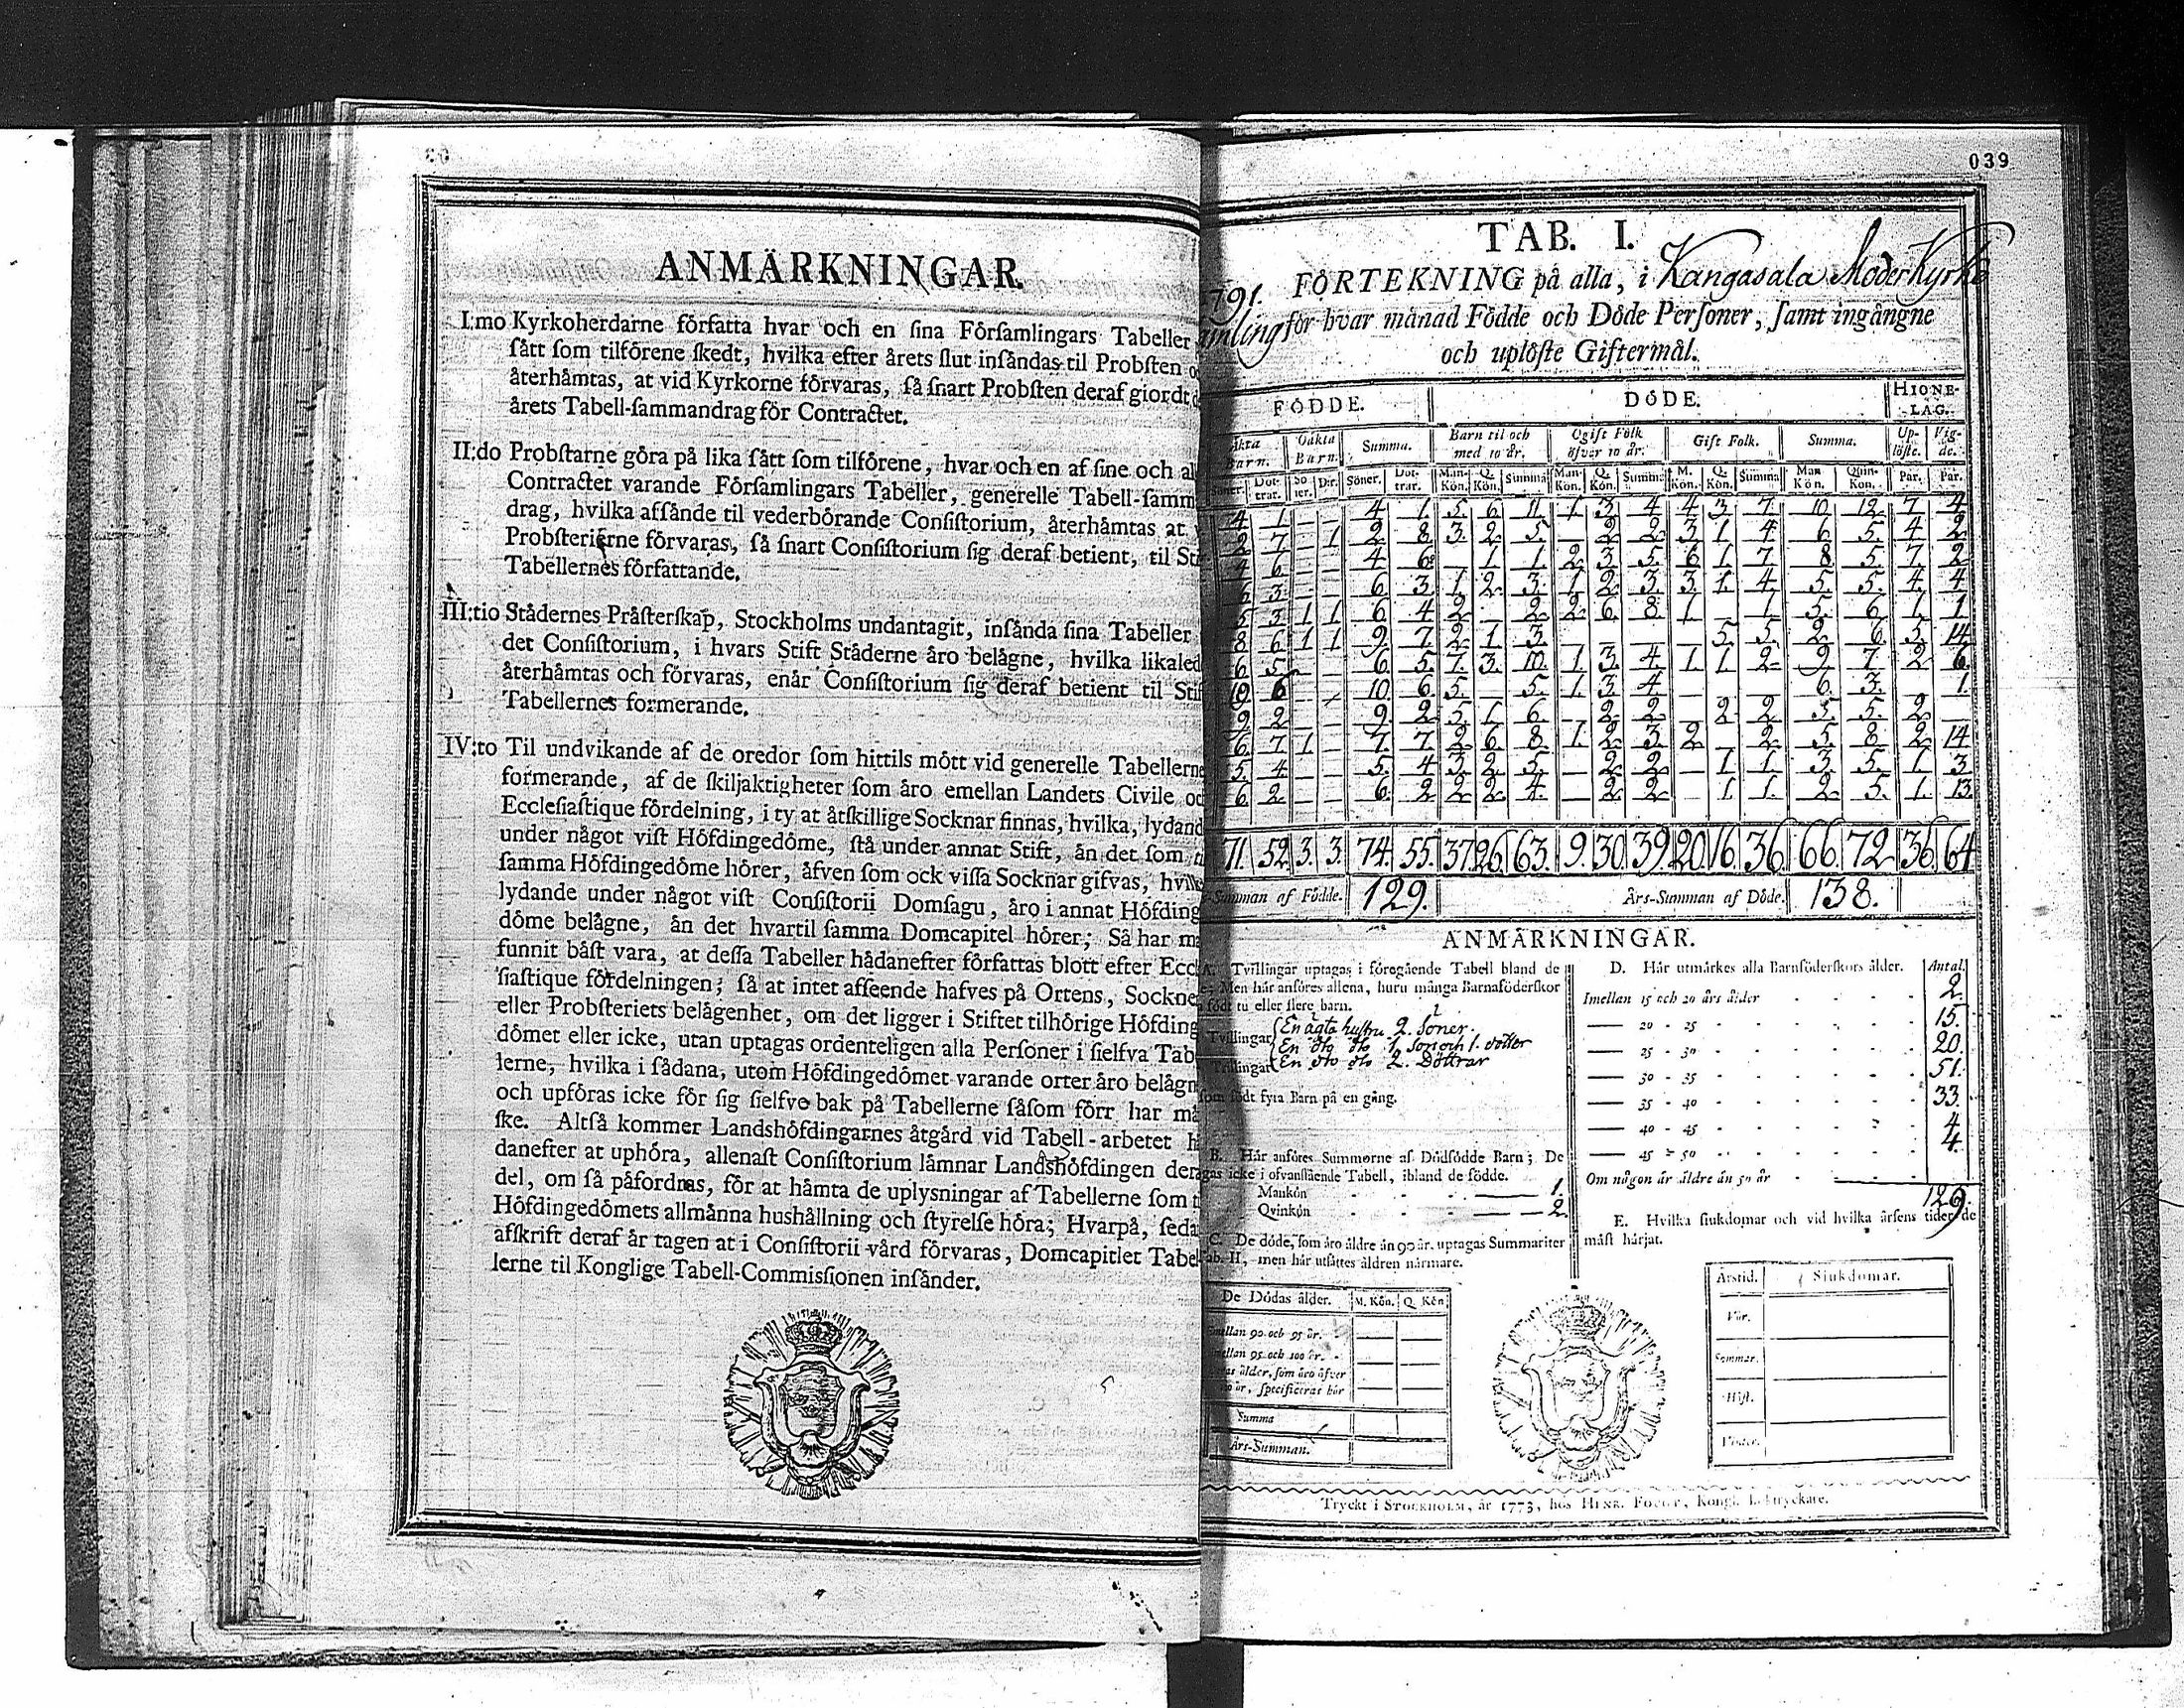 039
ANMÄRKNINGAR.
I:mo Kyrkoherdarne författa hvar och en sina Församlingars Tabeller
sätt som tilförene skedt, hvilka efter årets slut insändas til Probsten
återhämtas, at vid Kyrkorne förvaras, så snart Probsten deraf giordt
årets Tabell-sammandrag för Contractet.
II:do Probstarne göra på lika sätt som tilförene, hvar och en af sine och
Contractet varande Församlingars Tabeller, generelle Tabell-samm
drag, hvilka afsände til vederbörande Consistorium, återhämtas at
Probsterierne förvaras, så snart Consistorium sig deraf betient, til
Tabellernes författande.
III:tio Städernes Prästerskap, Stockholms undantagit, insända sina Tabeller
det Consistorium, i hvars Stift Städerne äro belägne, hvilka likaled
återhämtas och förvaras, enär Consistorium sig deraf betient til Stif
Tabellernes formerande.
IV:to Til undvikande af de oredor som hittils mött vid generelle Tabellerne
formerande, af de skiljaktigheter som äro emellan Landets Civile
Ecclesiastique fördelning, i ty at åtskillige Socknar finnas, hvilka, lydand
under något vist Höfdingedöme, stå under annat Stift, än det som
samma Höfdingedöme hörer, äfven som ock vissa Socknar gifvas,
lydande under något vist Consistorii Domsagu, äro i annat Höfding
döme belägne, än det hvartil samma Domcapitel hörer; Så har
funnit bäst vara, at dessa Tabeller hädanefter författas blott efter Eccl
siastique fördelningen; så at intet afseende hafves på Ortens, Sockne
eller Probsteriets belägenhet, om det ligger i Stiftet tilhörige Höfding
dömet eller icke, utan uptagas ordenteligen alla Personer i sielfva Tab
lerne, hvilka i sådana, utom Höfdingedömet varande orter äro belägn
och upföras icke för sig sielfve bak på Tabellerne såsom förr har
ske. Altså kommer Landshöfdingarnes åtgärd vid Tabell-arbetet
danefter at uphöra, allenast Consistorium lämnar Landshöfdingen
del, om så påfordras, för at hämta de uplysningar af Tabellerne som
Höfdingedömets allmänna hushållning och styrelse höra; Hvarpå, seda
afskrift deraf är tagen at i Consistorii vård förvaras, Domcapitlet Tabel-
lerne til Konglige Tabell-Commissionen insänder.
TAB. I.
791. FÖRTEKNING på alla, i Kangasala Moder Kyrko
för hvar månad Födde och Döde Personer, samt ingångne
och uplöste Giftermål.
FÖDDE. DÖDE. HIONE-LAG.
Äkta Barn. Oäkta Barn. Summa. Barn til och med 10 år. Ogift Folk öfver 10 år. Gift Folk. Summa. Up-löste. Vig-de.
Söner. Döt-trar. Sö ner. Dtr. Söner. Döt-trar. Man-Kön. Q. Kön. Summa Man-Kön. Q. Kön. Summa M. Kön. Q. Kön. Summa Man Kön. Quin-Kön. Par. Par.
4 1 — — 4 1. 5. 6 11. 1. 3 4 4 3. 7 10 12. 7. 4
2 7 — 1 2 8. 3. 2. 5. — 2 2. 3. 1. 4 6 5. 4 2
4 6 — — 4 6 — 1 1. 2. 3 5. 6 1. 7 8 5. 7. 2
6 3 — — 6 3. 1. 2. 3. 1. 2. 3. 3. 1. 4. 5 5. 4 4
5 3 1 1 6 4 2 2 2. 6 8 1 1. 5. 6 1. 1
8 6 1 1 9. 7 2 1 3 5. 5. 2 6. 5. 14
6 5 6 5. 7. 3. 10. 1. 3. 4. 1. 1 2. 9. 7 2 6.
10 6 10 6. 5. — 5. 1. 3. 4. 6. 3. 1.
9 2 9. 2 5 1. 6. 2 2. 2. 2. 5. 5. 2
6. 7 1. — 7. 7 2 6. 8. 1. 2. 3. 2 2. 5 8. 2. 14
5. 4 — — 5. 4 3 2. 5. — 2 2. — 1 1. 3 5. 1. 3
6. 2 — — 6. 2 2 2. 4. — 2 2. 1. 1. 2. 5. 1. 13.
71. 52. 3. 3. 74. 55. 37. 26. 63. 9. 30. 39. 20. 16. 36. 66. 72 36. 64
Summan af Födde. 129. Års-Summan af Döde. 138.
ANMÄRKNINGAR.
Tvillingar uptagas i föregående Tabell bland de
Men här anföres allena, huru många Barnaföderskor
födt tu eller flere barn.
Tvillingar En ägta hustru 2. Söner.
En dto dto 1. Son och 1. dotter
En dto dto 2. Döttrar
som födt fyra Barn på en gång.
B. Här anföres Summorne af Dödfödde Barn; De
gas icke i ofvanstående Tabell, ibland de födde.
Mankön 1.
Qvinkön 2.
C. De döde, som äro äldre än 90 år, uptagas Summariter
Tab. II, men här utsättes åldren närmare.
De Dödas ålder. M. Kön. Q. Kön
mellan 90 och 95 år.
mellan 95 och 100 år.
ålder, som äro öfver
100 år, specificeras här
Summa
Års-Summan.
D. Här utmärkes alla Barnföderskors ålder. Antal.
Imellan 15 och 20 års ålder 2.
20 - 25 15.
25 - 30 20.
30 - 35 51.
35 - 40 33.
40 - 45 4
45 - 50 4.
Om någon är äldre än 50 år
129.
E. Hvilka siukdomar och vid hvilka årsens tider de
mäst härjat.
Årstid. Siukdomar.
Vår.
Sommar.
Höst.
Vinter.
Tryckt i STOCKHOLM, år 1773, hos HENR. FOUGT, Kongl. Boktryckare.